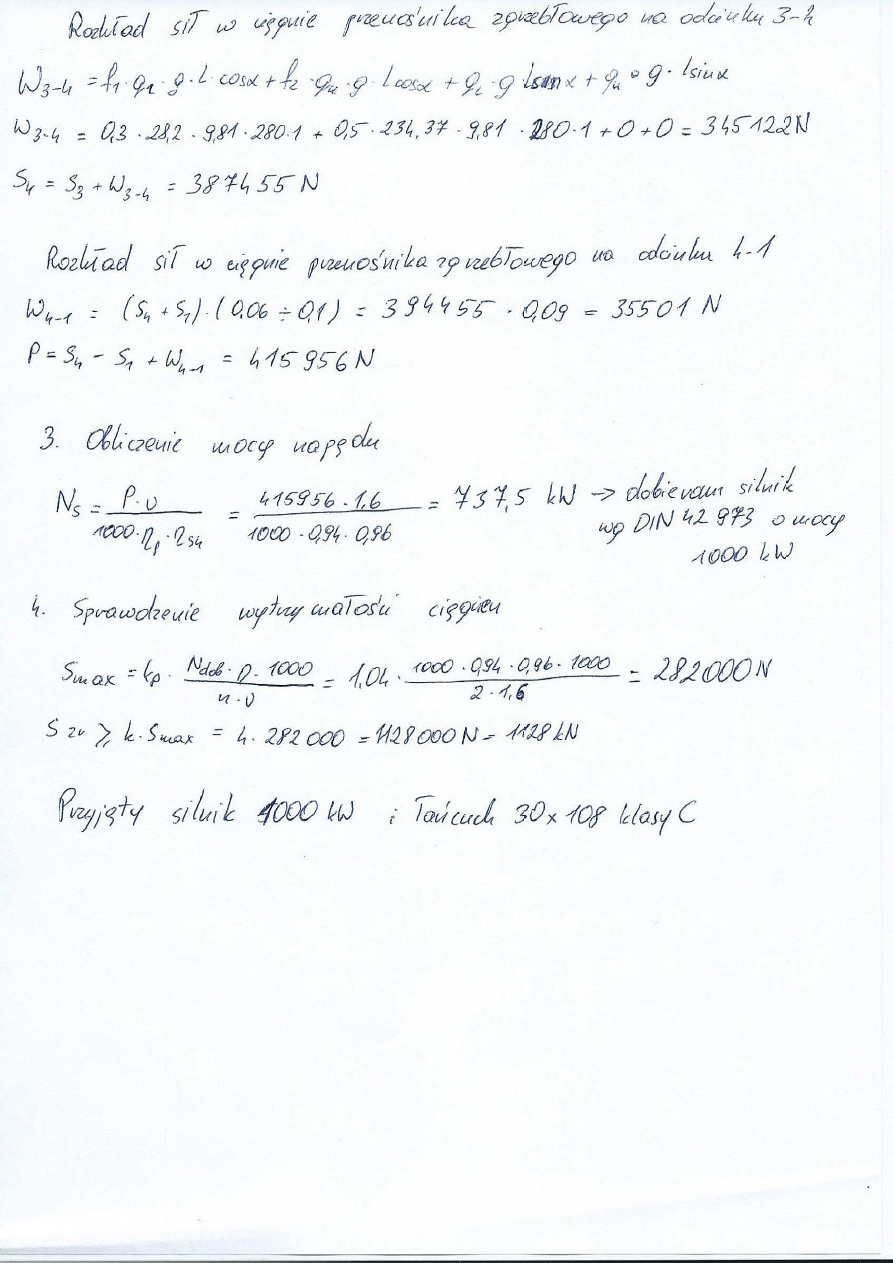 Rozkład sił w cięgnie przenośnika zgrzebłowego na odcinku 3-4
W₃₋₄ = f₁·q₂·g·L·cosα + f₂·qᵤ·g·Lcosα + q₂·g·Lsinα + qᵤ·g·Lsinα
W₃₋₄ = 0,3·28,2·9,81·280·1 + 0,5·234,37·9,81·280·1 + 0 + 0 = 345122N
S₄ = S₃ + W₃₋₄ = 387455 N
Rozkład sił w cięgnie przenośnika zgrzebłowego na odcinku 4-1
W₄₋₁ = (S₄ + S₁)·(0,06 ÷ 0,1) = 394455 · 0,09 = 35501 N
P = S₄ - S₁ + W₄₋₁ = 415956 N
3. Obliczenie mocy napędu
Nₛ = P·v / 1000·ηₚ·ηₛₕ = 415956·1,6 / 1000·0,94·0,96 = 737,5 kW → dobieram silnik
wg DIN 42 973 o mocy
1000 kW
4. Sprawdzenie wytrzymałości cięgien
Smax = kₚ · Ndob·η·1000 / n·v = 1,04 · 1000·0,94·0,96·1000 / 2·1,6 = 282000 N
S zr ≥ k·Smax = 4·282000 = 1128000 N = 1128 kN
Przyjęty silnik 1000 kW i łańcuch 30x108 klasy C